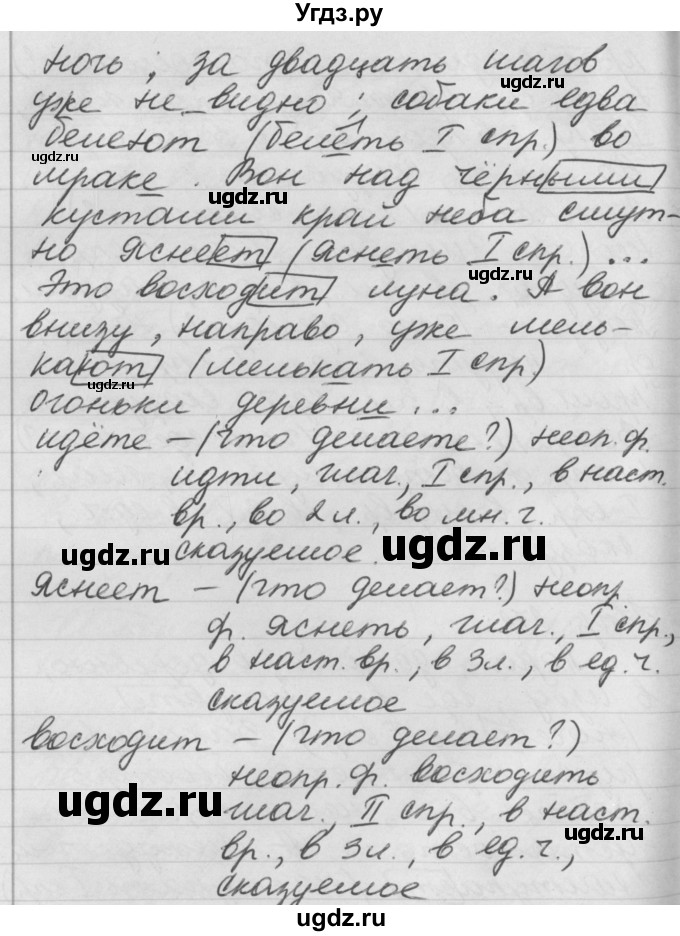 Угдз.ру
ночь; за двадцать шагов
уже не видно; собаки едва
белеют (белеть I спр.) во
мраке. Вон над чёрными
кустами край неба смут-
но яснеет (яснеть I спр.)...
Это восходит луна. А вон
внизу, направо, уже мель-
кают (мелькать I спр.)
огоньки деревни...
идёте – (что делаете?) неоп. ф.
идти, глаг., I спр., в наст.
вр., во 2 л., во мн. ч.
сказуемое.
Яснеет – (что делает?) неопр
ф. яснеть, глаг., I спр.,
в наст. вр., в 3 л., в ед. ч.
сказуемое
восходит – (что делает?)
неопр. ф. восходить
глаг., II спр., в наст.
вр., в 3 л., в ед. ч.,
сказуемое
ugdz.ru
ugdz.ru
ugdz.ru
ugdz.ru
ugdz.ru
ugdz.ru
ugdz.ru
ugdz.ru
ugdz.ru
ugdz.ru
ugdz.ru
ugdz.ru
ugdz.ru
ugdz.ru